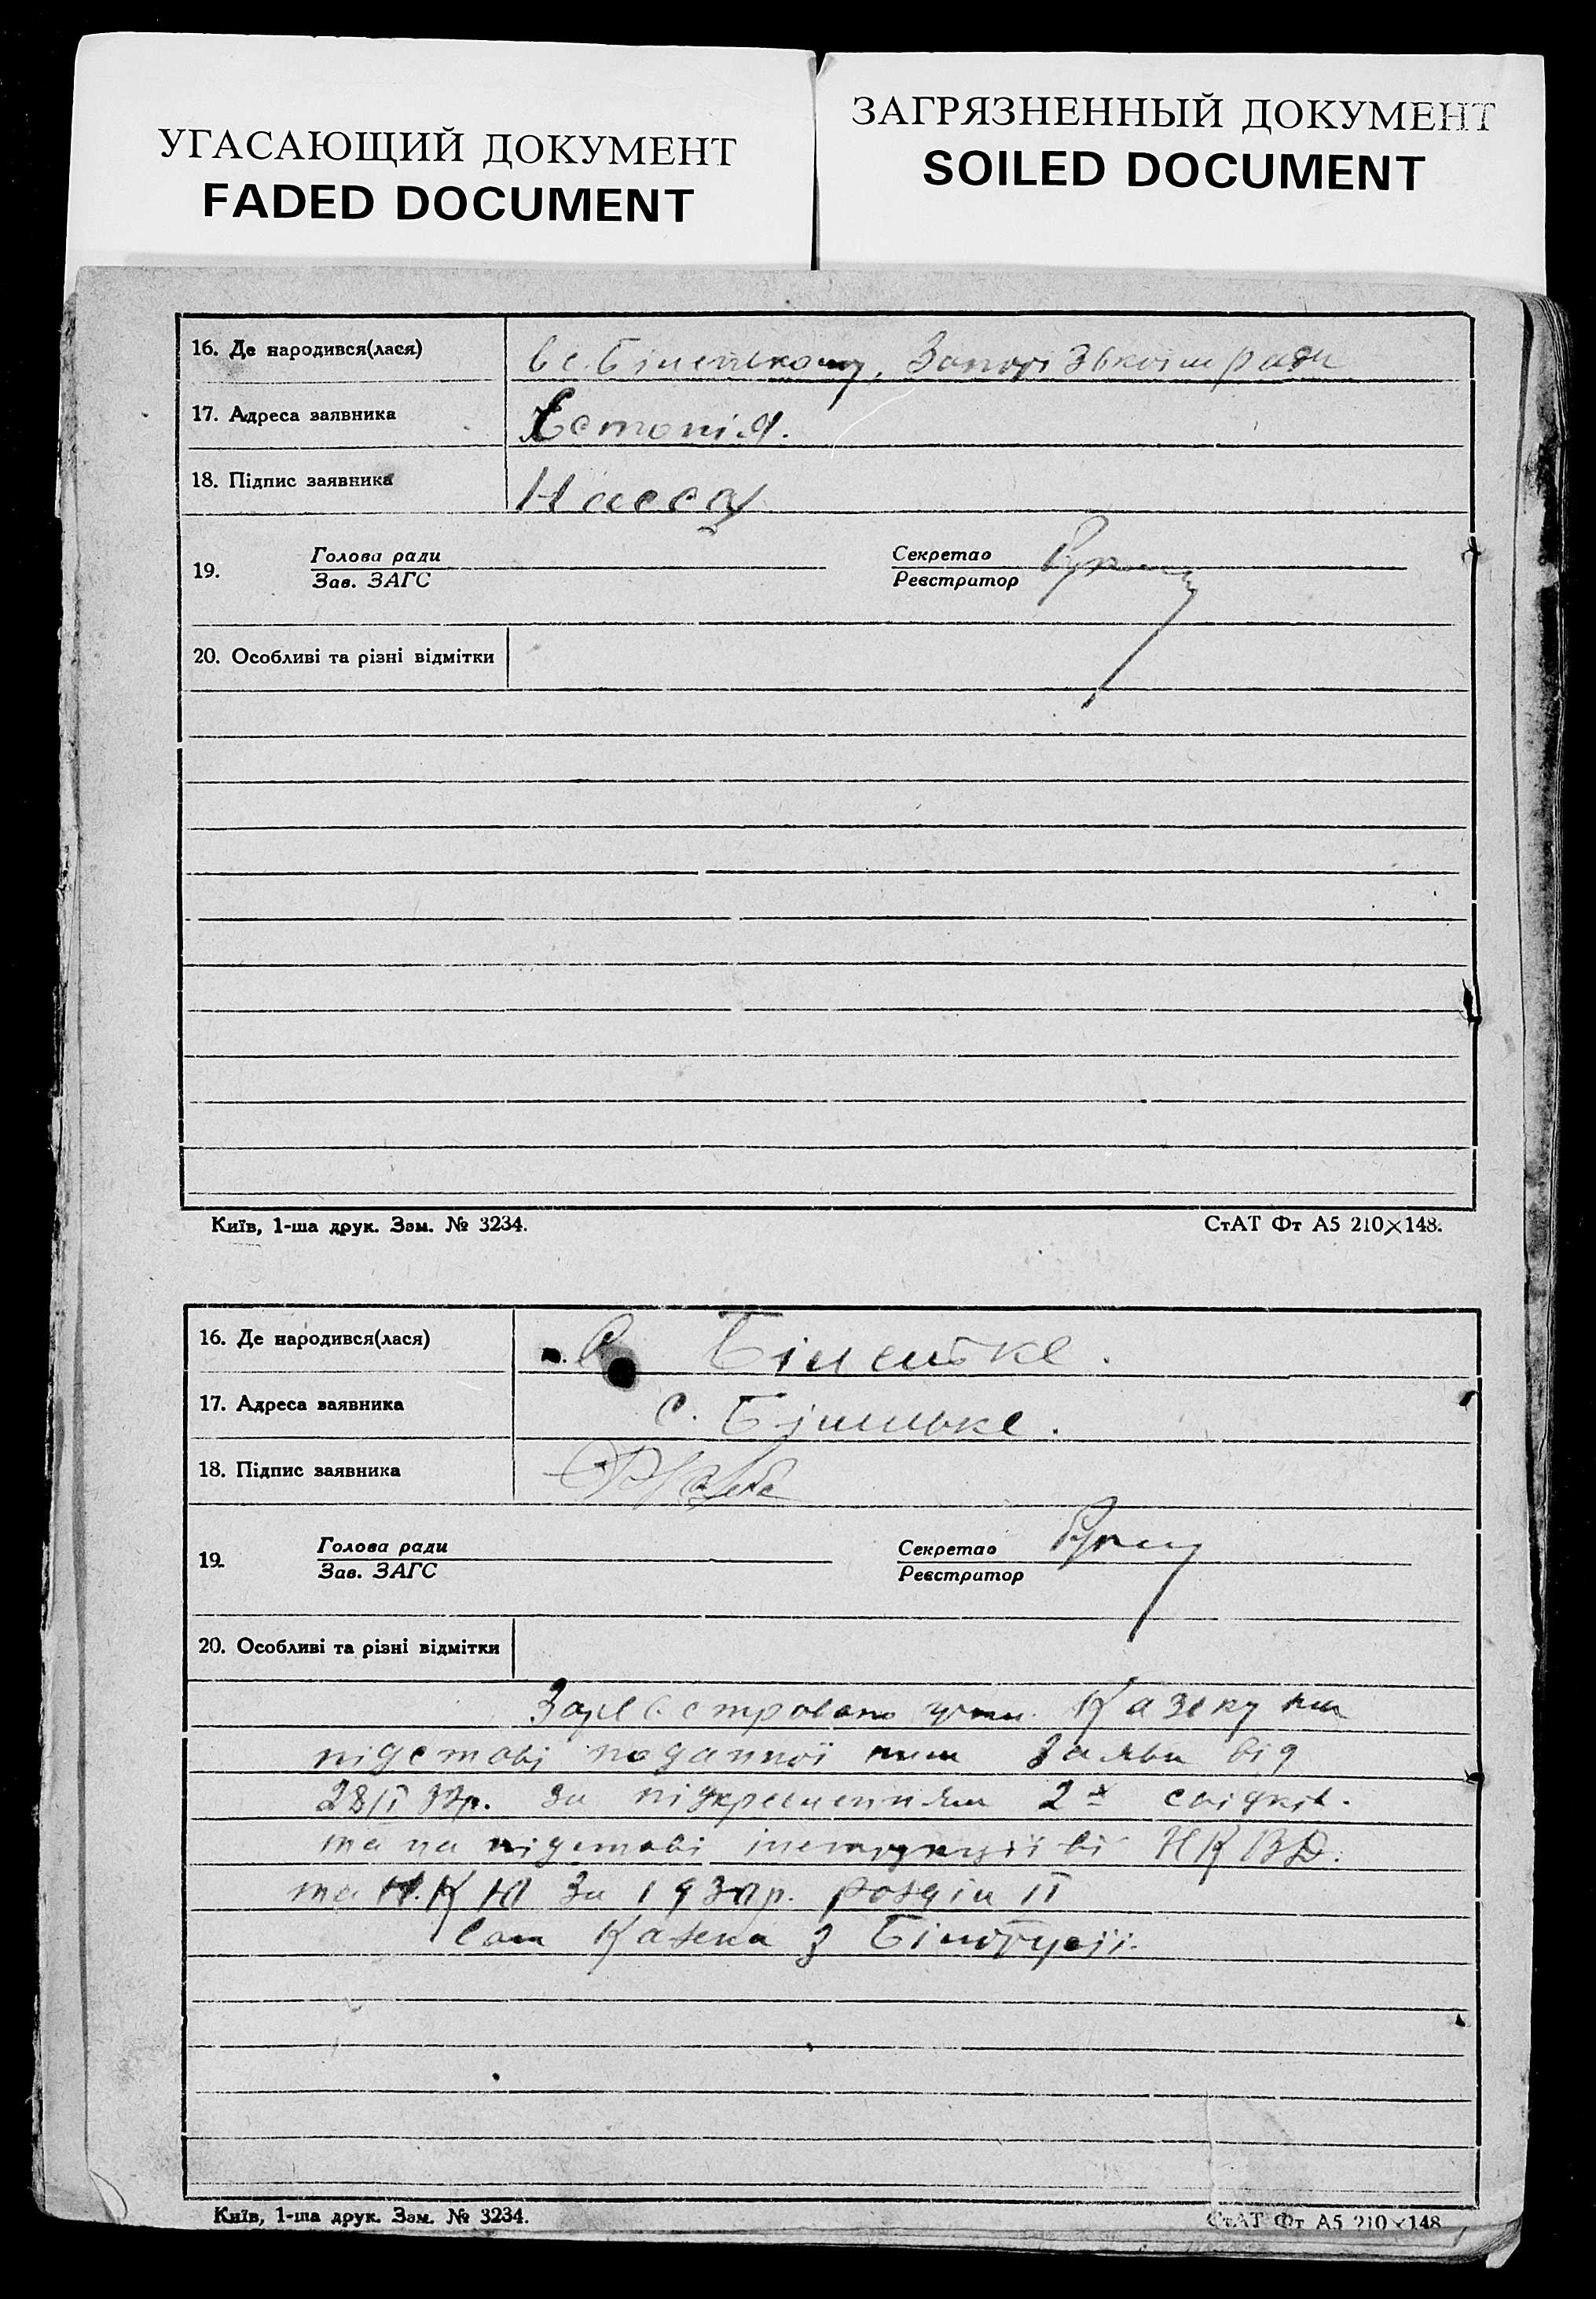 УГАСАЮЩИЙ ДОКУМЕНТ
FADED DOCUMENT
ЗАГРЯЗНЕННЫЙ ДОКУМЕНТ
SOILED DOCUMENT
16. Де народився(лася)
17. Адреса заявника
Естонія.
18. Підпис заявника
19. Голова ради
Зав. ЗАГС
Секретар
Реєстратор
20. Особливі та різні відмітки
Київ, 1-ша друк. Зам. № 3234.
СтАТ Фт А5 210×148.
16. Де народився(лася)
с. Біленьке.
17. Адреса заявника
с. Біленьке.
18. Підпис заявника
19. Голова ради
Зав. ЗАГС
Секретар
Реєстратор
20. Особливі та різні відмітки
Зареєстровано Казеку на
підставі поданної ним заяви від
28/І р. за підкресленням 2х свідків.
та на підставі інструкції НКВД.
та Н.К.Ю за розділ ІІ
Сам Казека з Білорусії.
Київ, 1-ша друк. Зам. № 3234.
СтАТ Фт А5 210×148